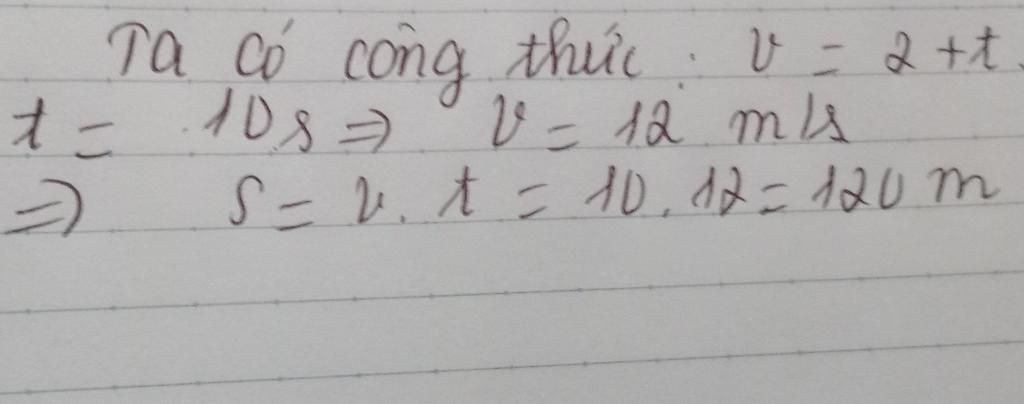 Ta có công thức: v = 2 + t.
t = 10s => v = 12 m/s
=> s = v. t = 10. 12 = 120 m